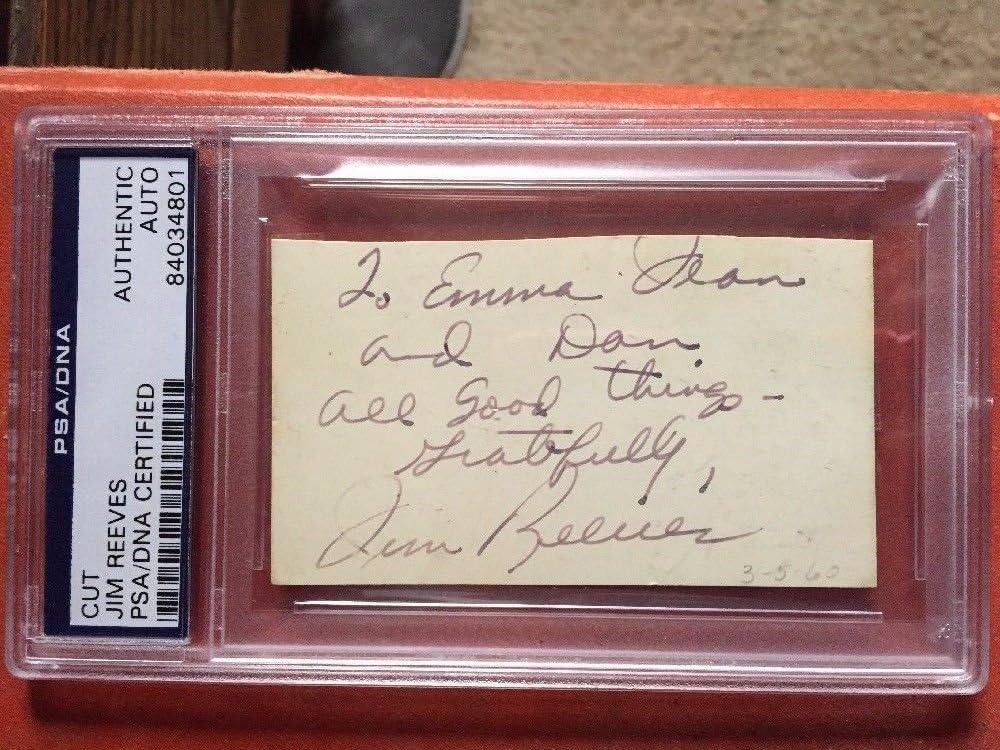 PSA/DNA
CUT
JIM REEVES
PSA/DNA CERTIFIED
AUTHENTIC
AUTO
84034801
To Emma Jean
and Dan
all good things -
Gratefully,
Jim Reeves
3-5-60